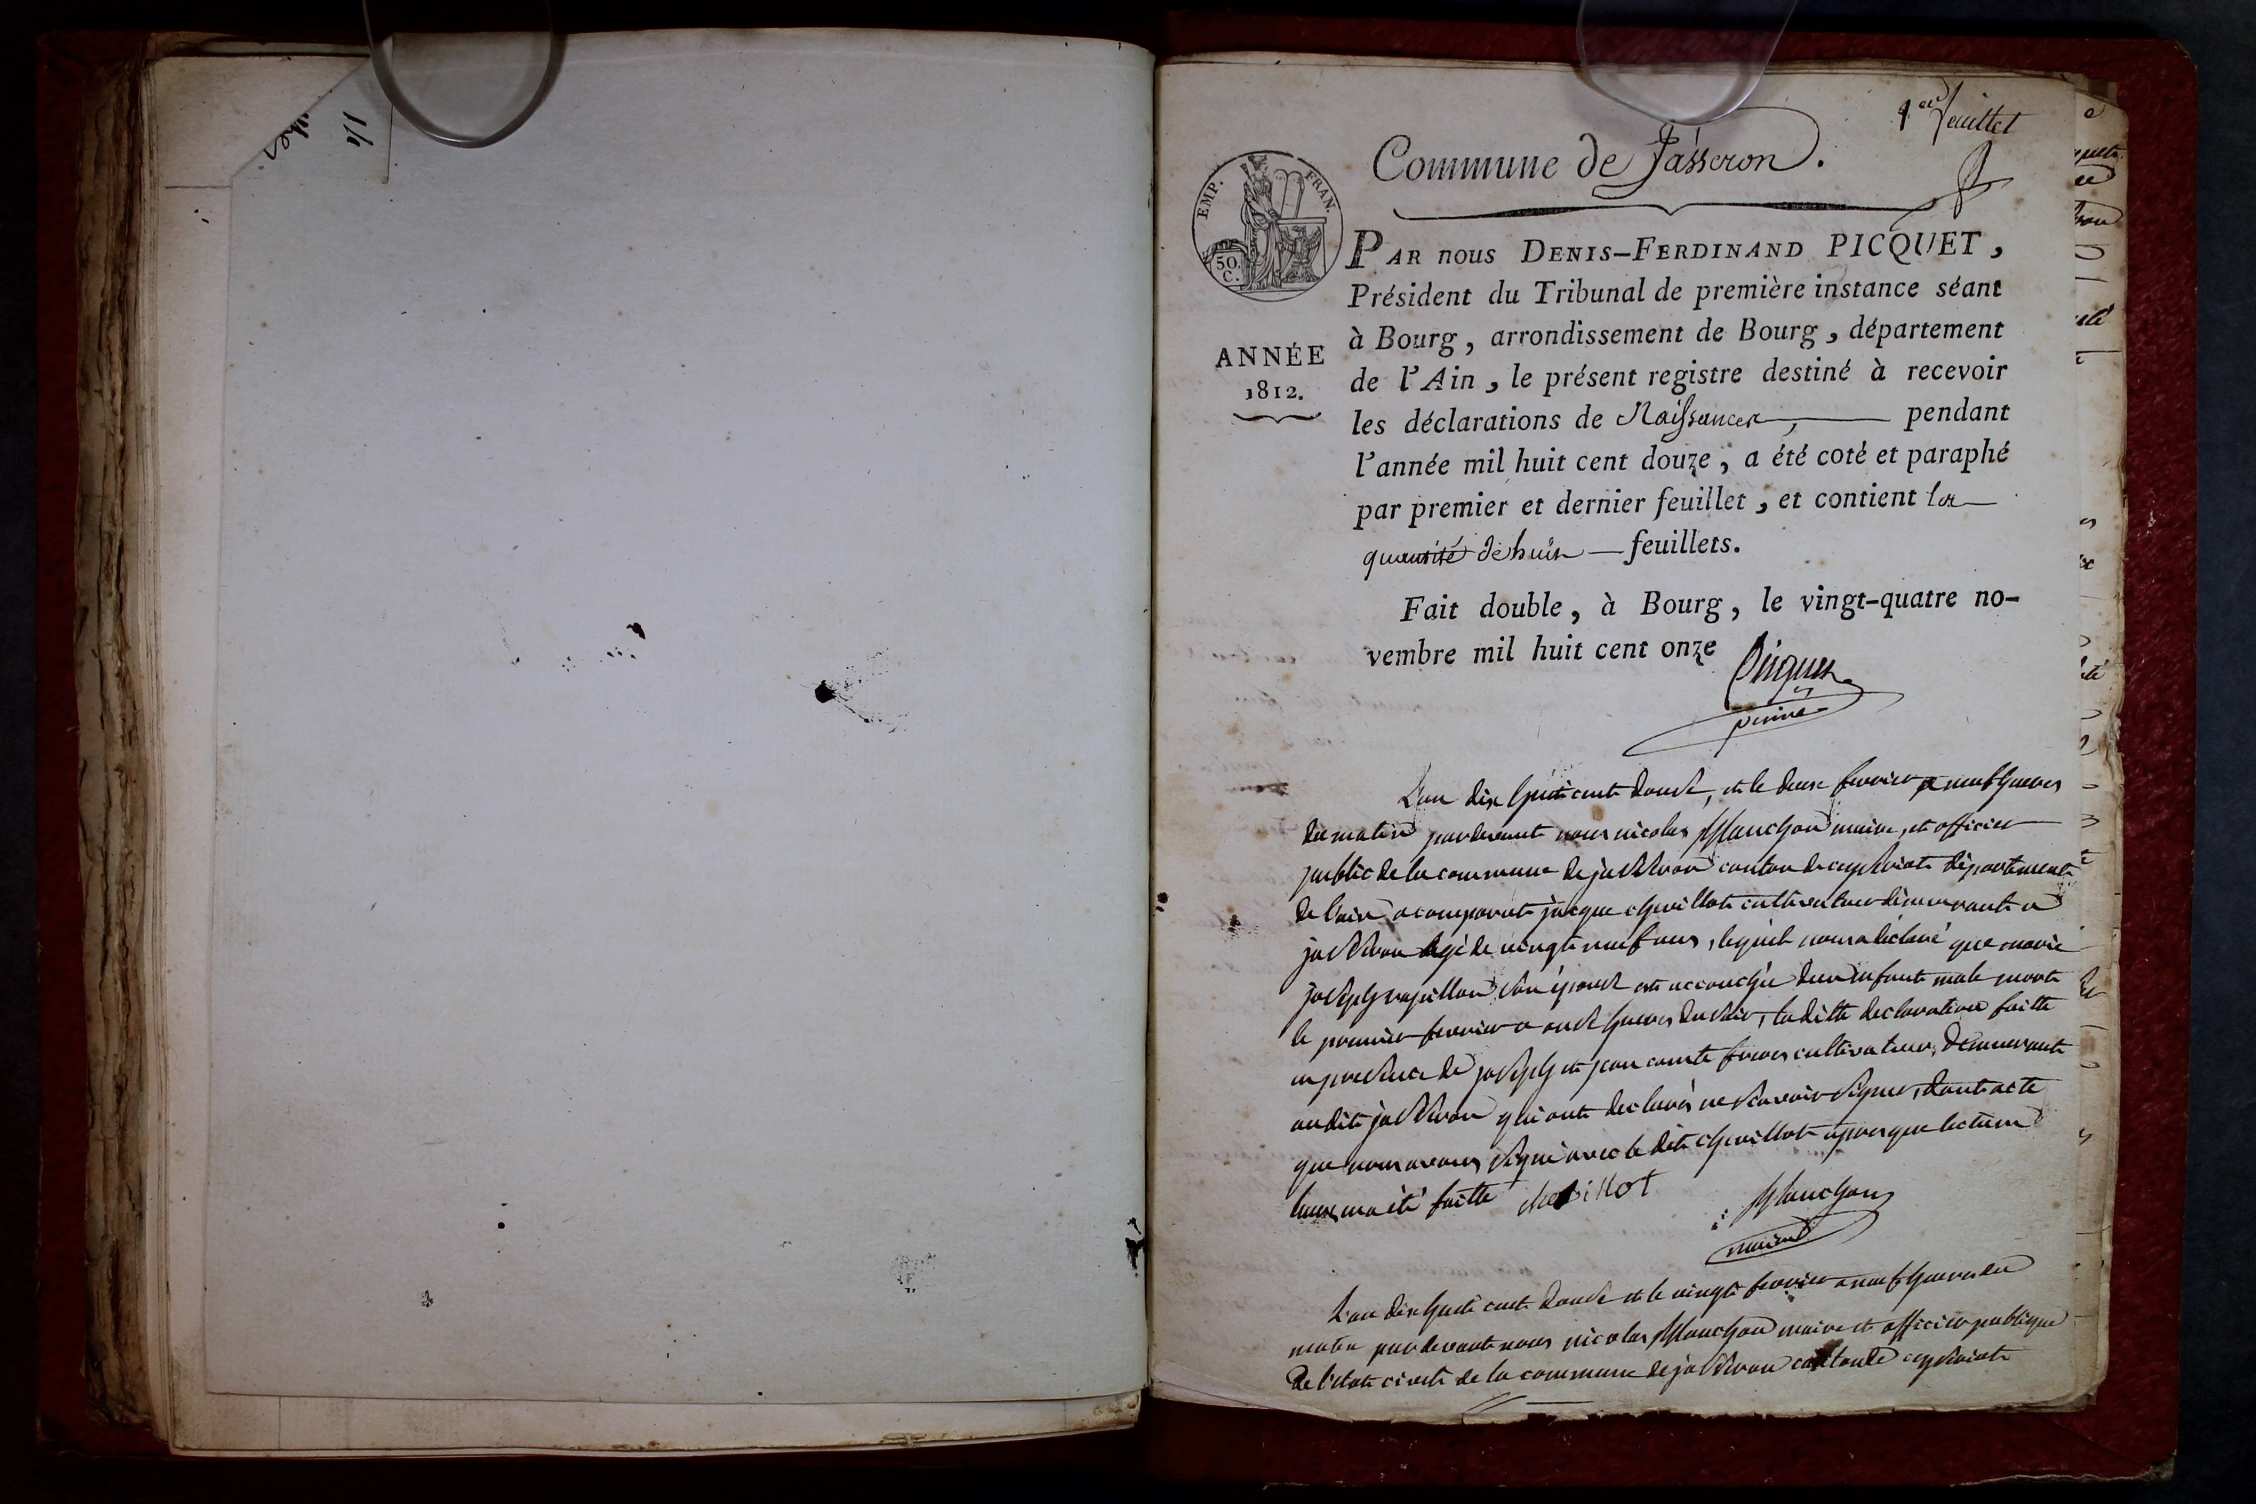 1er feuillet
Commune de Jasseron.
EMP. FRAN.
50. C.
ANNÉE
1812.
PAR nous DENIS-FERDINAND PICQUET,
Président du Tribunal de première instance séant
à Bourg, arrondissement de Bourg, département
de l'Ain, le présent registre destiné à recevoir
les déclarations de Naissances, pendant
l'année mil huit cent douze, a été coté et paraphé
par premier et dernier feuillet, et contient la
quantité de huit feuillets.
Fait double, à Bourg, le vingt-quatre no-
vembre mil huit cent onze
Picquet
L'an dix huit cent douse, et le deux fevrier a neuf heures
du matin pardevant nous nicolas Manchon maire, et officier
public de la commune de jasseron canton de ceyseriat département
de l'ain a comparut jacque chevillot cultivateur démeurant a
jasseron agé de vingt neuf ans, lequel nous a déclaré que marie
joseph son épouse est accouchée d'un enfant male mort
le premier fevrier a onse heures du soir, la ditte declaration faitte
en presence de joseph et jean comte freres cultivateurs, démeurant
audit jasseron qui ont declarés ne scavoir signer, dont acte
que nous avons signé avec le dit chevillot apres que lecture
leurs en a été faitte chevillot Manchon
maire
L'an dix huit cent douse et le vingt fevrier a neuf heures du
matin pardevant nous nicolas Manchon maire et officier publique
de l'etat civil de la commune de jasseron canton de ceyseriat